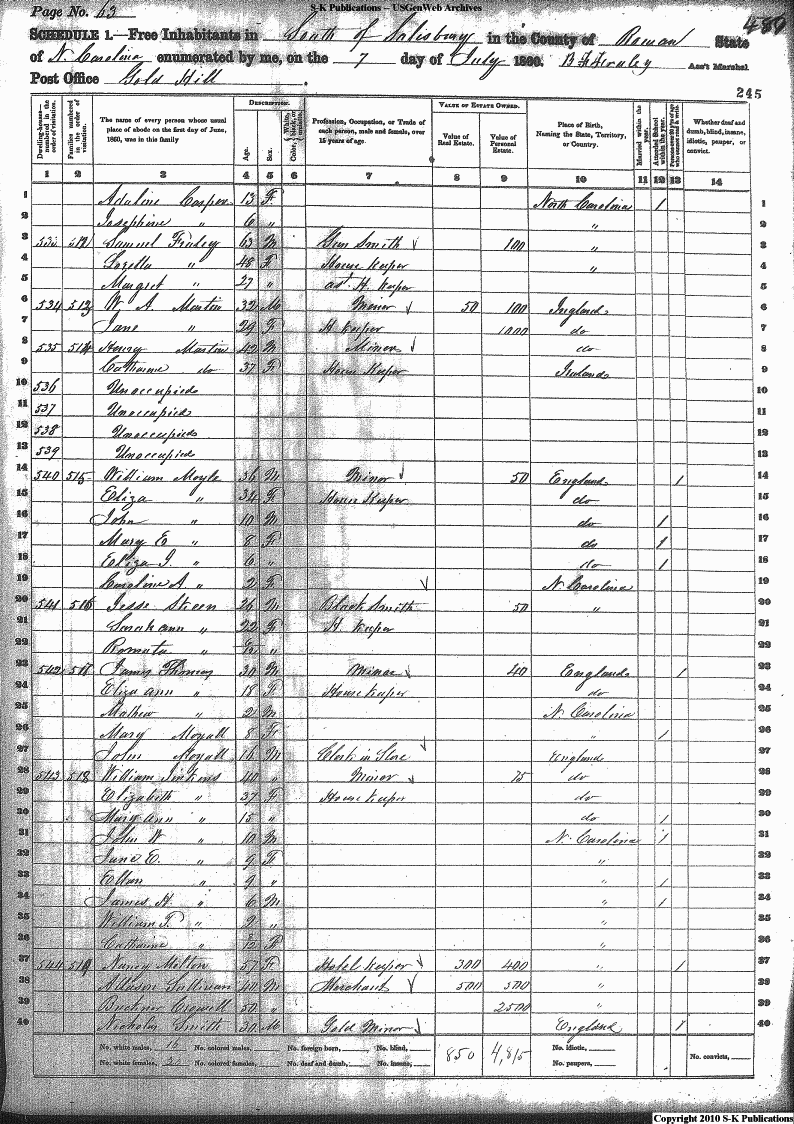 S-K Publications – USGenWeb Archives
Page No. 63
480
SCHEDULE 1.—Free Inhabitants in South of Salisbury in the County of Rowan State
of N. Carolina enumerated by me, on the 7 day of July 1860. Ass't Marshal
Post Office Gold Hill
245
Dwelling-houses—numbered in the order of visitation.
Families numbered in the order of visitation.
The name of every person whose usual place of abode on the first day of June, 1860, was in this family
DESCRIPTION.
Age.
Sex.
Color,
Profession, Occupation, or Trade of each person, male and female, over 15 years of age.
VALUE OF ESTATE OWNED.
Value of Real Estate.
Value of Personal Estate.
Place of Birth, Naming the State, Territory, or Country.
Married within the year.
Attended School within the year.
Whether deaf and dumb, blind, insane, idiotic, pauper, or convict.
1 2 3 4 5 6 7 8 9 10 11 12 13 14
1 Adaline Casper 13 F North Carolina 1 1
2 Josephine " 6 " " 2
3 533 Samuel Fraley 63 M Gun Smith 100 " 3
4 Lozetta " 48 F House Keeper " 4
5 Margret " 27 " ast H. Keeper 5
6 534 512 W A. Martin 32 M Minor 50 100 Ingland 6
7 Jane " 29 F H Keeper 1000 do 7
8 535 514 Henry Martin 42 M Minor do 8
9 Catharine do 37 F House Keeper Ireland 9
10 536 Unoccupied 10
11 537 Unoccupied 11
12 538 Unoccupied 12
13 539 Unoccupied 13
14 540 515 William Moyle 36 M Minor 50 England 1 14
15 Eliza " 34 F House Keeper do 15
16 John " 10 M do 1 16
17 Mary E " 8 F do 1 17
18 Eliza J. " 6 " do 1 18
19 Caroline A. " 2 F N Carolina 19
20 541 516 Jesse Skeen 26 M Black Smith 50 " 20
21 Sarah ann " 22 F H Keeper 21
22 " " 22
23 542 517 James Thomas 30 M Minor 40 England 1 23
24 Eliza ann " 18 F House Keeper do 24
25 Mathew " 2 M N Carolina 25
26 Mary Moyall 8 F " 1 26
27 John Moyall 16 M Clerk in Store England 27
28 543 518 William Jinkins 40 " Minor 75 do 28
29 Elizabeth " 37 F House Keeper do 29
30 Mary ann " 15 " do 1 30
31 John W " 10 M N Carolina 1 31
32 Jane E. " 9 F " 32
33 Ellen " 9 " " 1 33
34 James H. " 6 M " 1 34
35 William T. " 2 " " 35
36 Catharine " F " 36
37 544 519 Nancy Melton 57 F Hotel Keeper 300 400 " 1 37
38 Sullivan 40 M Merchant 500 500 " 38
39 Buckner Crowell 50 " 2500 39
40 Nicholas Smith 30 M Gold Minor England 1 40
No. white males, No. colored males, No. foreign born, No. blind, 850 4,815 No. idiotic,
No. white females, No. colored females, No. deaf and dumb, No. insane, No. paupers, No. convicts,
Copyright 2010 S-K Publications